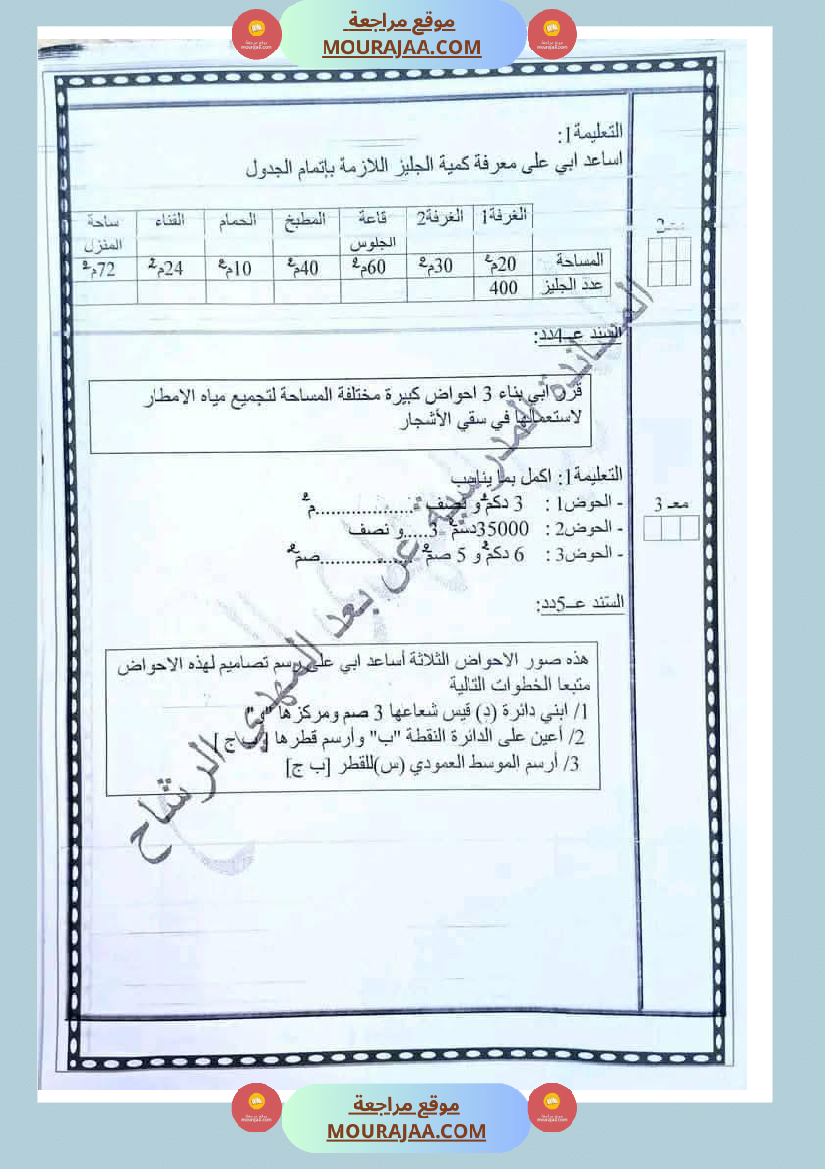 موقع مراجعة
MOURAJAA.COM
التعليمة1:
اساعد ابي على معرفة كمية الجليز اللازمة بإتمام الجدول
الغرفة1 الغرفة2 قاعة الجلوس المطبخ الحمام الفناء ساحة المنزل
المساحة 20م² 30م² 60م² 40م² 10م² 24م² 72م²
عدد الجليز 400
السند عـ4ـدد:
قرر ابي بناء 3 احواض كبيرة مختلفة المساحة لتجميع مياه الامطار
لاستعمالها في سقي الأشجار
التعليمة1: اكمل بما يناسب
- الحوض1 : 3 دكم² و نصف = ...................م²
- الحوض2 : 35000دسم² 3.....و نصف
- الحوض3 : 6 دكم² و 5 صم² ..................صم²
معـ 3
السند عـ5ـدد:
هذه صور الاحواض الثلاثة أساعد ابي على رسم تصاميم لهذه الاحواض
متبعا الخطوات التالية
1/ ابني دائرة (د) قيس شعاعها 3 صم ومركزها "و"
2/ أعين على الدائرة النقطة "ب" وأرسم قطرها [ب ج]
3/ أرسم الموسط العمودي (س)للقطر [ب ج]
المساندة المدرسية عن بعد المهدي الرشاح
موقع مراجعة
MOURAJAA.COM